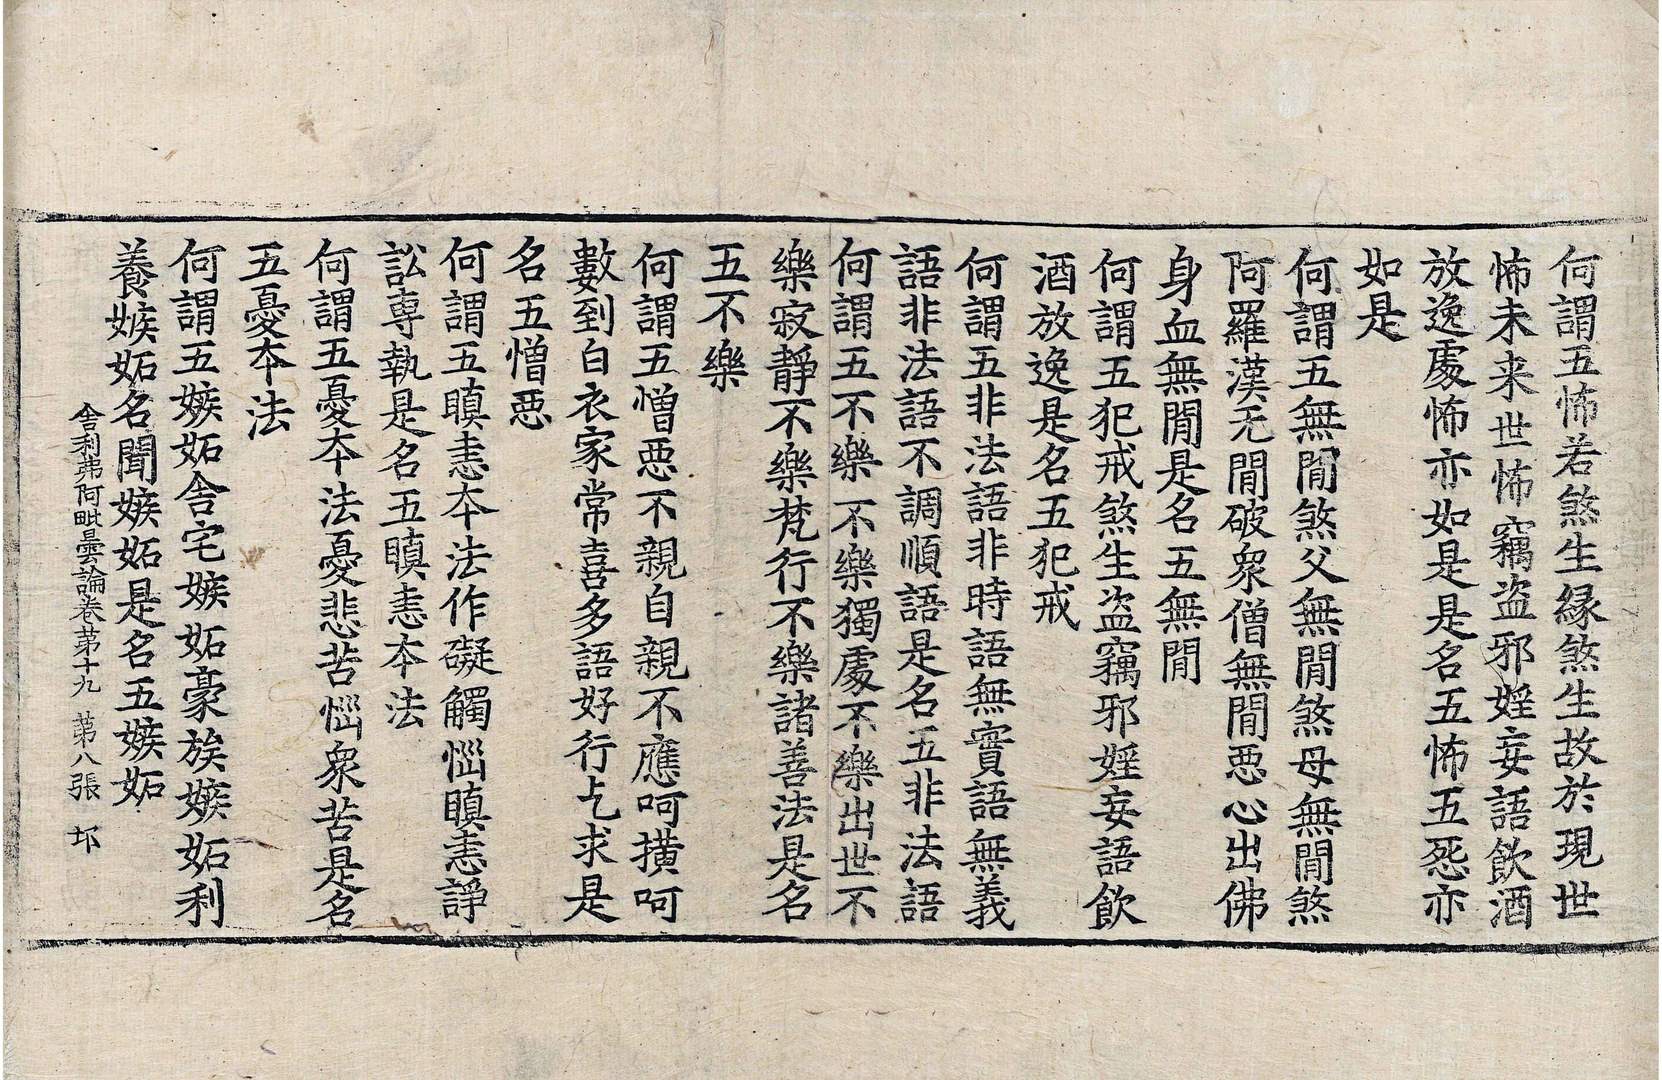 何謂五怖若煞生縁煞生故於現世
怖未来世怖竊盗邪婬妄語飲酒
放逸處怖亦如是是名五怖五死亦
如是
何謂五無閒煞父無閒煞母無閒煞
阿羅漢无閒破衆僧無閒惡心出佛
身血無閒是名五無閒
何謂五犯戒煞生盗竊邪婬妄語飲
酒放逸是名五犯戒
何謂五非法語非時語無實語無義
語非法語不調順語是名五非法語
何謂五不樂不樂獨處不樂出世不
樂寂靜不樂梵行不樂諸善法是名
五不樂
何謂五憎惡不親自親不應呵撗呵
數到白衣家常喜多語好行乞求是
名五憎惡
何謂五瞋恚夲法作礙觸惱瞋恚諍
訟専執是名五瞋恚夲法
何謂五憂夲法憂悲苦惱衆苦是名
五憂夲法
何謂五嫉妬舎宅嫉妬豪族嫉妬利
養嫉妬名聞嫉妬是名五嫉妬
舎利弗阿毗曇論卷苐十九 苐八張 邙